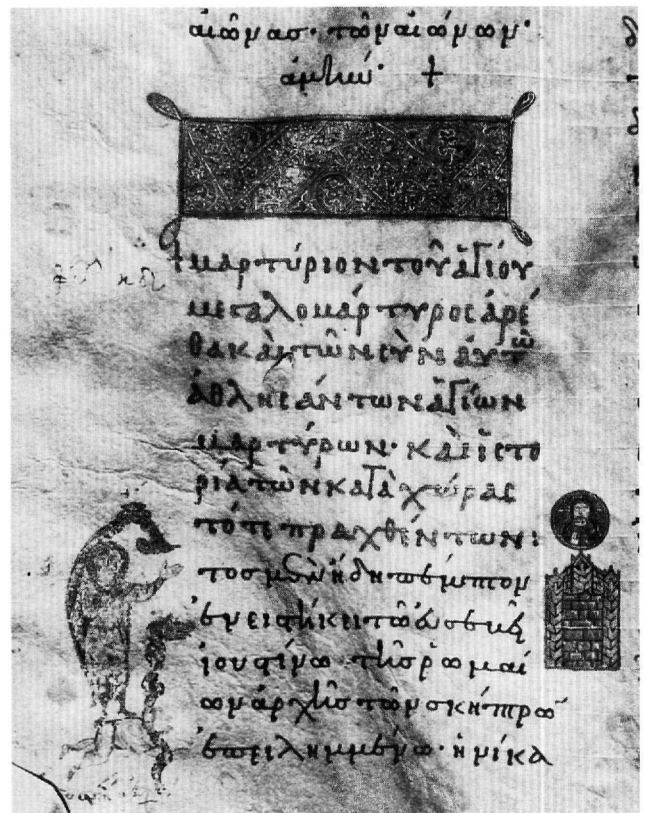 αἰῶνασ· τῶν αἰώνων·
ἀμήν· ✝
✝ μαρτύριον τοῦ ἁγίου
μεγαλομάρτυρος ἀρέ
θα καὶ τῶν σὺν αὐτῶ
ἀθλησάντων ἁγίων
μαρτύρων· καὶ ἱστο
ρία τῶν κατὰ χώρας
τότε πραχθέντων:
ἤδη πέμπτον
ἰουστίνω τῆσ ρωμαί
ων ἀρχῆσ τῶν σκήπρω
ἐπειλημμένω· ἡνίκα